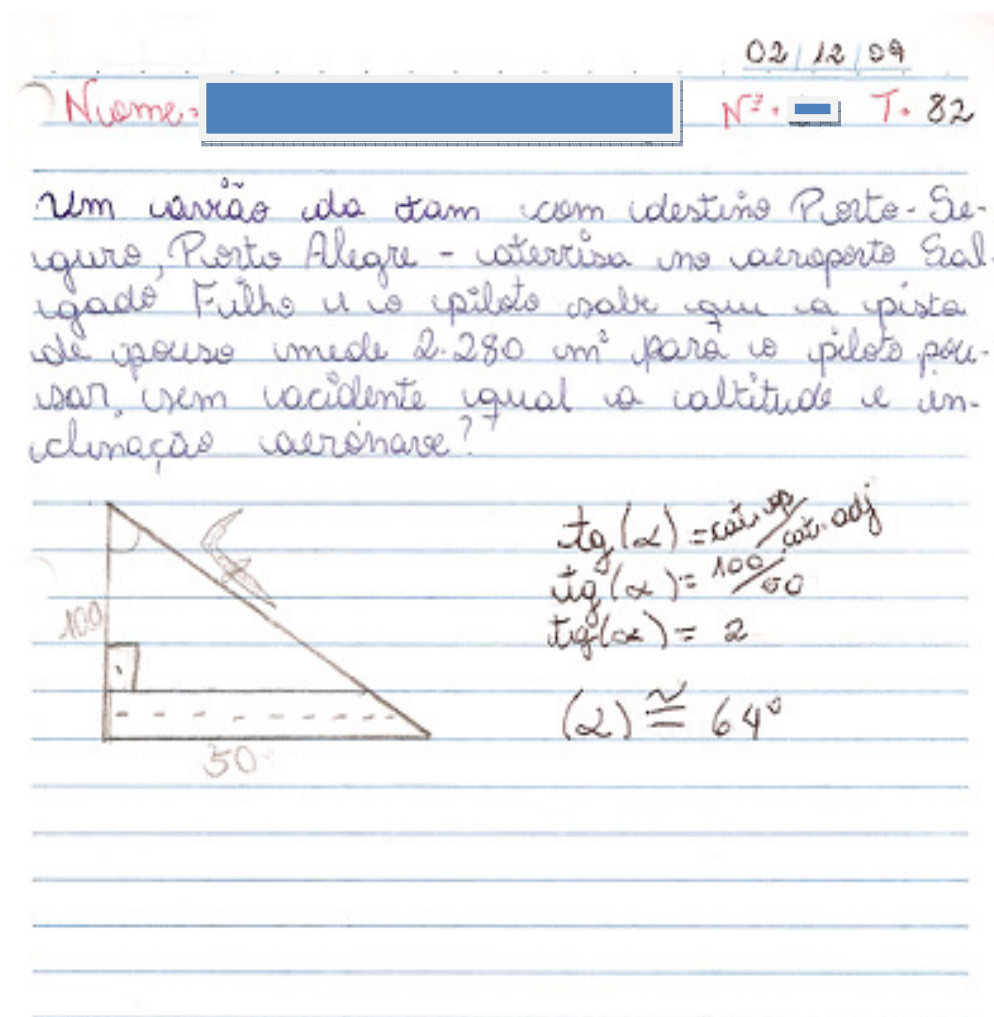 02/12/09
Nome: Nº: T. 82
Um avião da tam com destino Porto-Se-
guro, Porto Alegre - aterrisa no aeroporto Sal-
gado Filho e o piloto sabe que a pista
de pouso mede 2.280 m² para o piloto pou-
sar, sem acidente igual a altitude e in-
clinação aerónave?
tg (α) = cat. op / cat. adj
100
tg (α) = 100/50
tg (α) = 2
(α) ≅ 64°
50